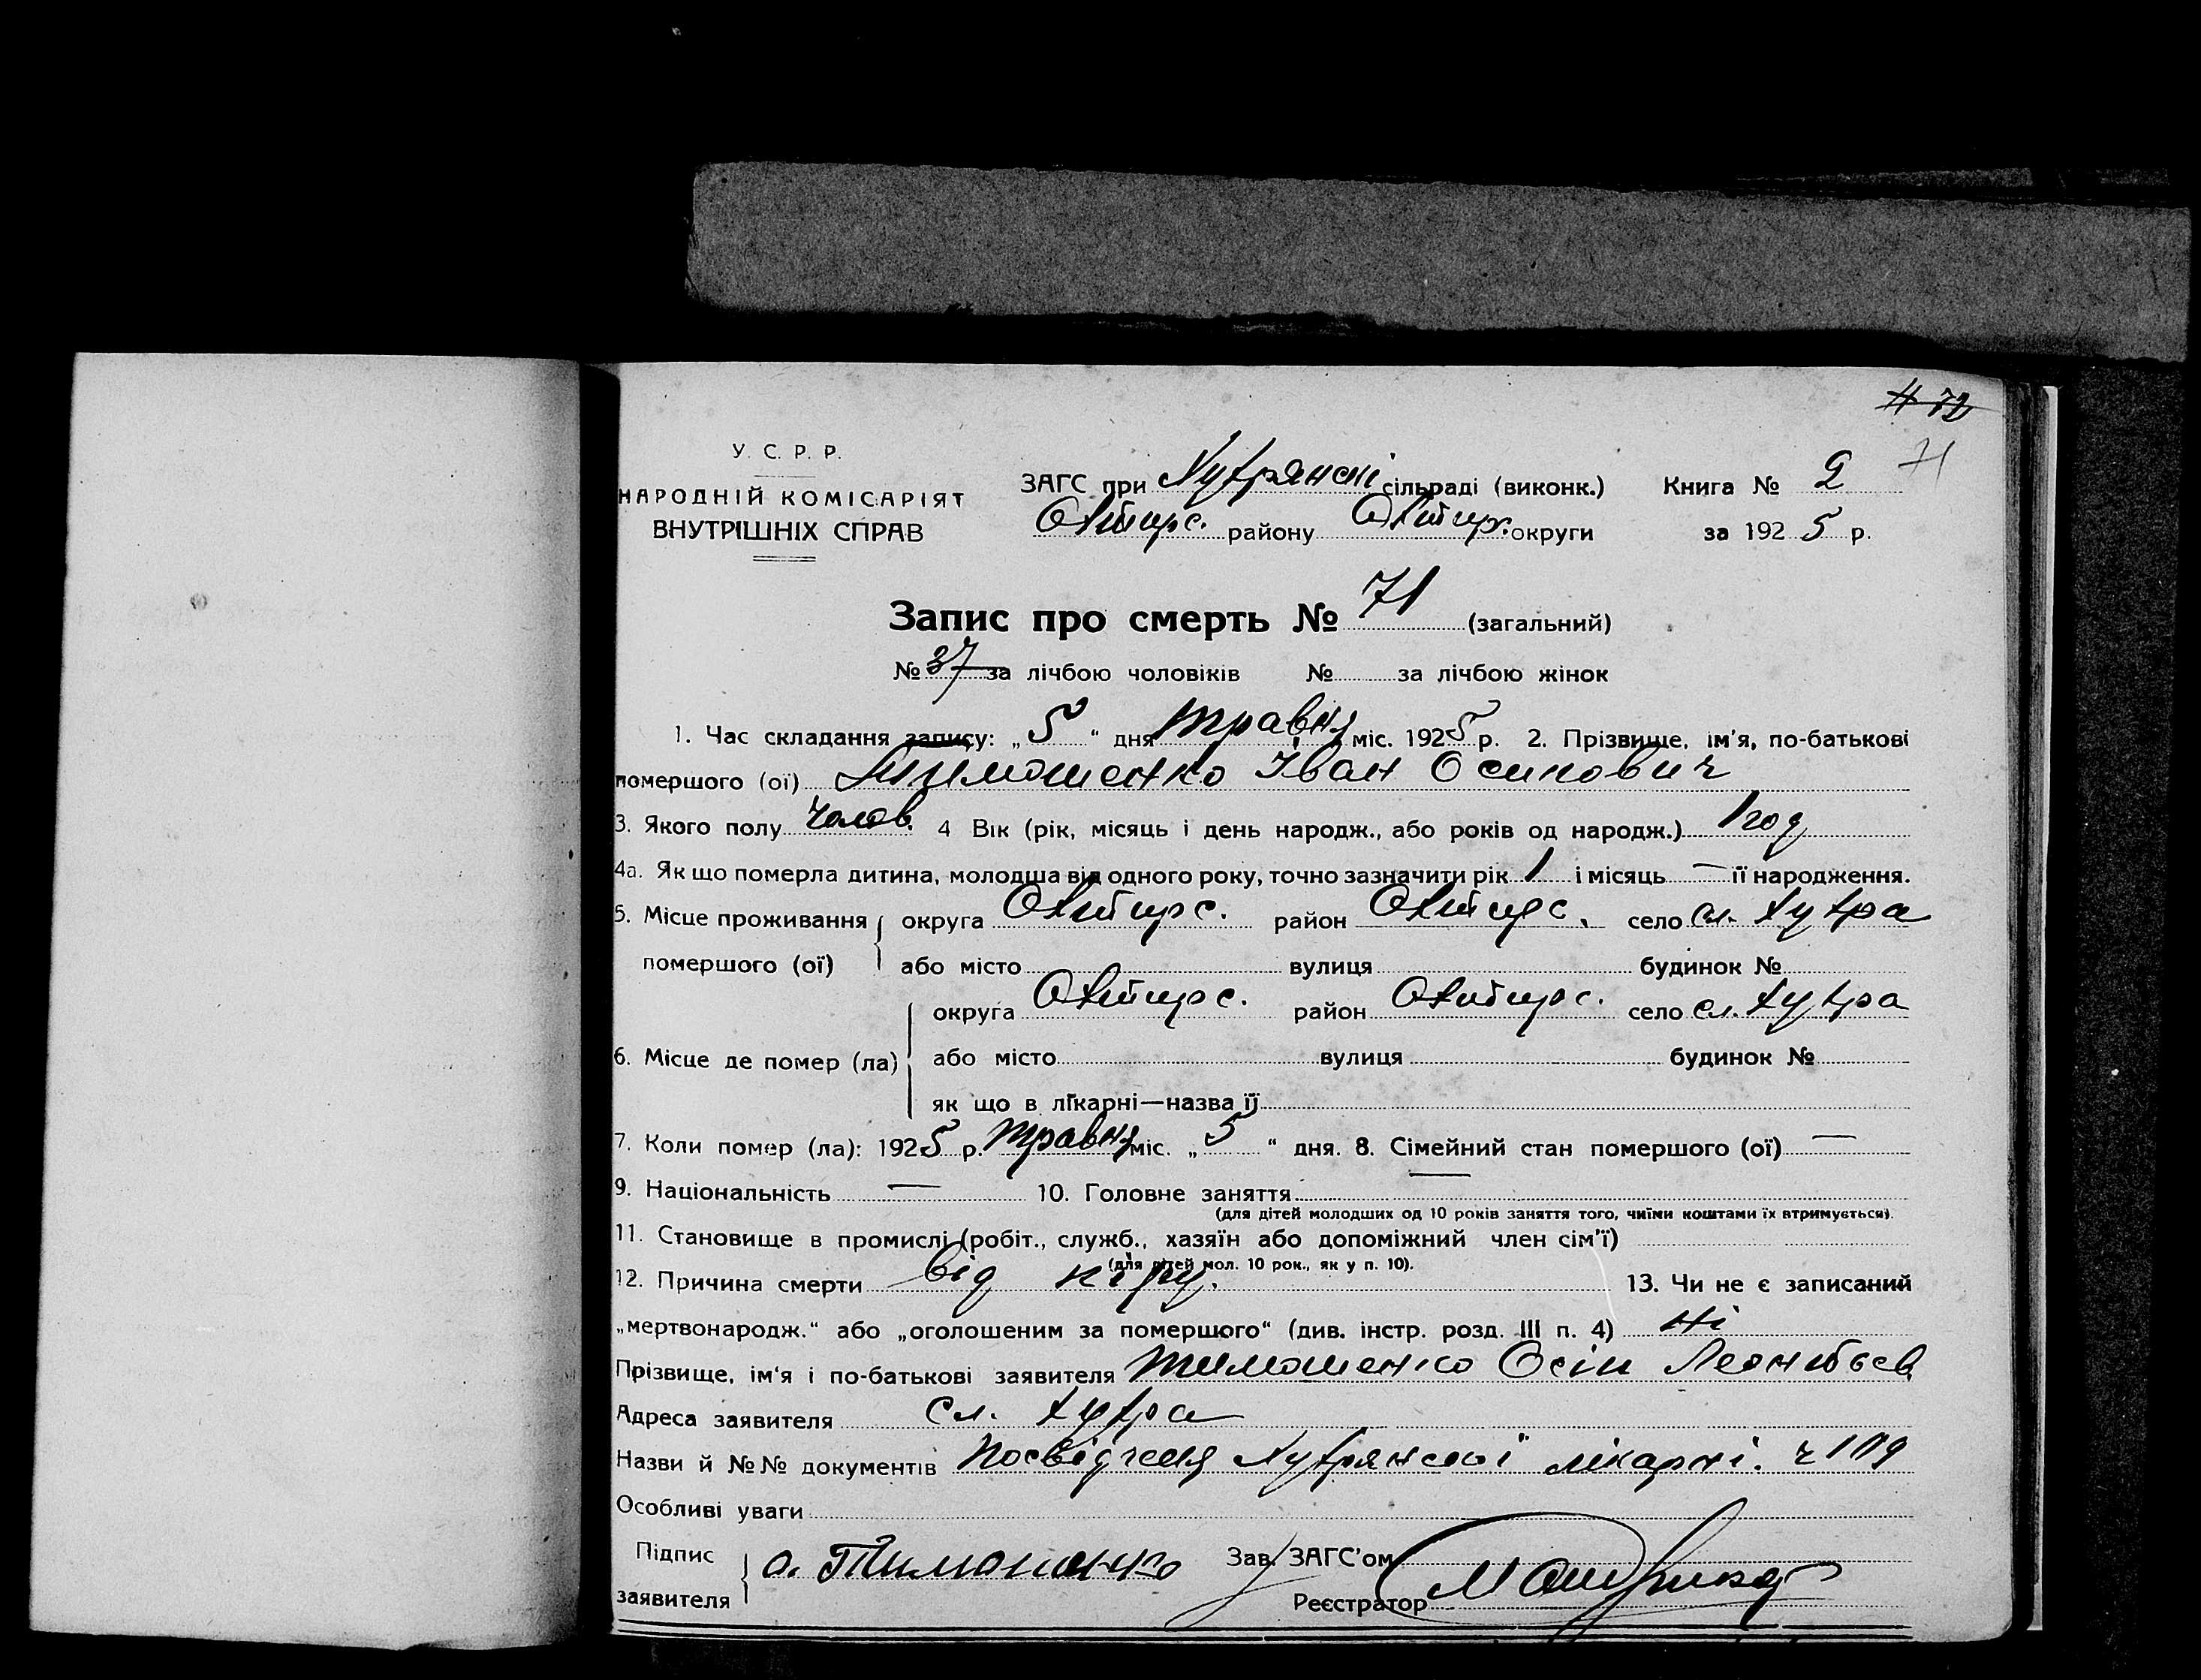 # 72
71
У. С. Р. Р.
НАРОДНІЙ КОМІСАРІЯТ
ВНУТРІШНІХ СПРАВ
ЗАГС при Хухрянскі сільраді (виконк.) Книга № 2
Охтирс. району Охтирс. округи за 1925 р.
Запис про смерть № 71 (загальний)
№ 37 за лічбою чоловіків № за лічбою жінок
1. Час складання запису: „5“ дня травня міс. 1925 р. 2. Прізвище, ім'я, по-батькові
помершого (ої) Тимошенко Іван Осипович
3. Якого полу Чолов. 4 Вік (рік, місяць і день народж., або років од народж.) 1 год
4а. Як що померла дитина, молодша від одного року, точно зазначити рік 1 і місяць — її народження.
5. Місце проживання округа Охтирс. район Охтирс. село сл. Хухра
помершого (ої) або місто вулиця будинок №
округа Охтирс. район Охтирс. село сл. Хухра
6. Місце де помер (ла) або місто вулиця будинок №
як що в лікарні—назва її
7. Коли помер (ла): 1925 р. травня міс. „5“ дня. 8. Сімейний стан помершого (ої) —
9. Національність — 10. Головне заняття —
(для дітей молодших од 10 років заняття того, чиїми коштами їх втримується).
11. Становище в промислі (робіт., служб., хазяїн або допоміжний член сім'ї)
(для дітей мол. 10 рок., як у п. 10).
12. Причина смерти від кіру. 13. Чи не є записаний
„мертвонародж.“ або „оголошеним за помершого“ (див. інстр. розд. III п. 4) ні
Прізвище, ім'я і по-батькові заявителя Тимошенко Осіп Леонтьєв
Адреса заявителя Сл. Хухра
Назви й №№ документів Посвідченя Хухрянскої лікарні. ч 109
Особливі уваги
Підпис
заявителя О. Тимошенко Зав. ЗАГС'ом
Реєстратор